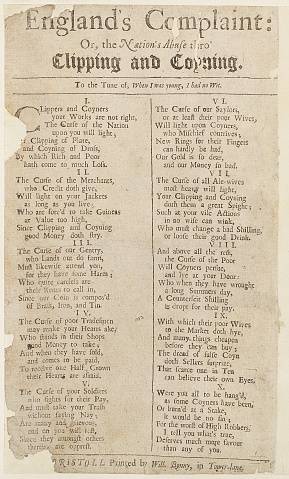 England's Complaint:
Or, the Nation's Abuse thro'
Clipping and Coyning.
To the Tune of, When I was young, I had no Wit.
I.
Clippers and Coyners
your Works are not right,
The Curse of the Nation
upon you will light;
Clipping of Plate,
and Coyning of
By which Rich and Poor
hath come to much Loss.
II.
The Curse of the Merchants,
who Credit doth give,
Will light on your Jackets
as long as you live;
Who are forc'd to take Guineas
at Value too high,
Since Clipping and Coyning
good Money doth
III.
The Curse of our Gentry,
who Lands out do farm,
Must likewise attend you,
for they have done Harm;
Who quite cancels are
their Rents to call in,
Since our Coin is compos'd
of Brass, Iron, and Tin.
IV.
The Curse of poor Tradesmen
may make your Hearts ake,
Who stands in their Shops
good Money to take;
And when they have sold,
and comes to be paid,
To receive one Half Crown
their Hearts are afraid.
V.
The Curse of your Soldiers
who fights for their Pay,
And must take your Trash
without saying Nay,
Are many and grievous,
and on you will rest,
Since they amongst others
thereby are opprest.
VI.
The Curse of our Saylors,
or at least their poor Wives,
Will light upon Coyners,
who Mischief contrives;
New Rings for their Fingers
can hardly be had,
Our Gold is so dear,
and our Money so bad.
VII.
The Curse of all Ale-wives
most heavy will light,
Your Clipping and Coyning
doth them a great Spight;
Such at your vile Actions
in no wise can wink,
Who must change a bad Shilling,
or lose their good Drink.
VIII.
And above all the rest,
the Curse of the Poor
Will Coyners pursue,
and lye at your Door:
Who when they have wrought
a long Summers day,
A Counterfeit Shilling
to crops for their pay.
IX.
With which their poor Wives
to the Market doth hye,
And many things cheapen
before they can buy;
The dread of false Coyn
doth Sellers surprise,
That scarce one in Ten
can believe their own Eyes.
X.
Were you all to be hang'd,
as some Coyners have been,
Or burn'd at a Stake,
it would be no sin;
For the worst of High Robbers,
I tell you what's true,
Deserves much more favour
than any of you.
BRISTOLL Printed by Will. Bonny, in Tower-lane.